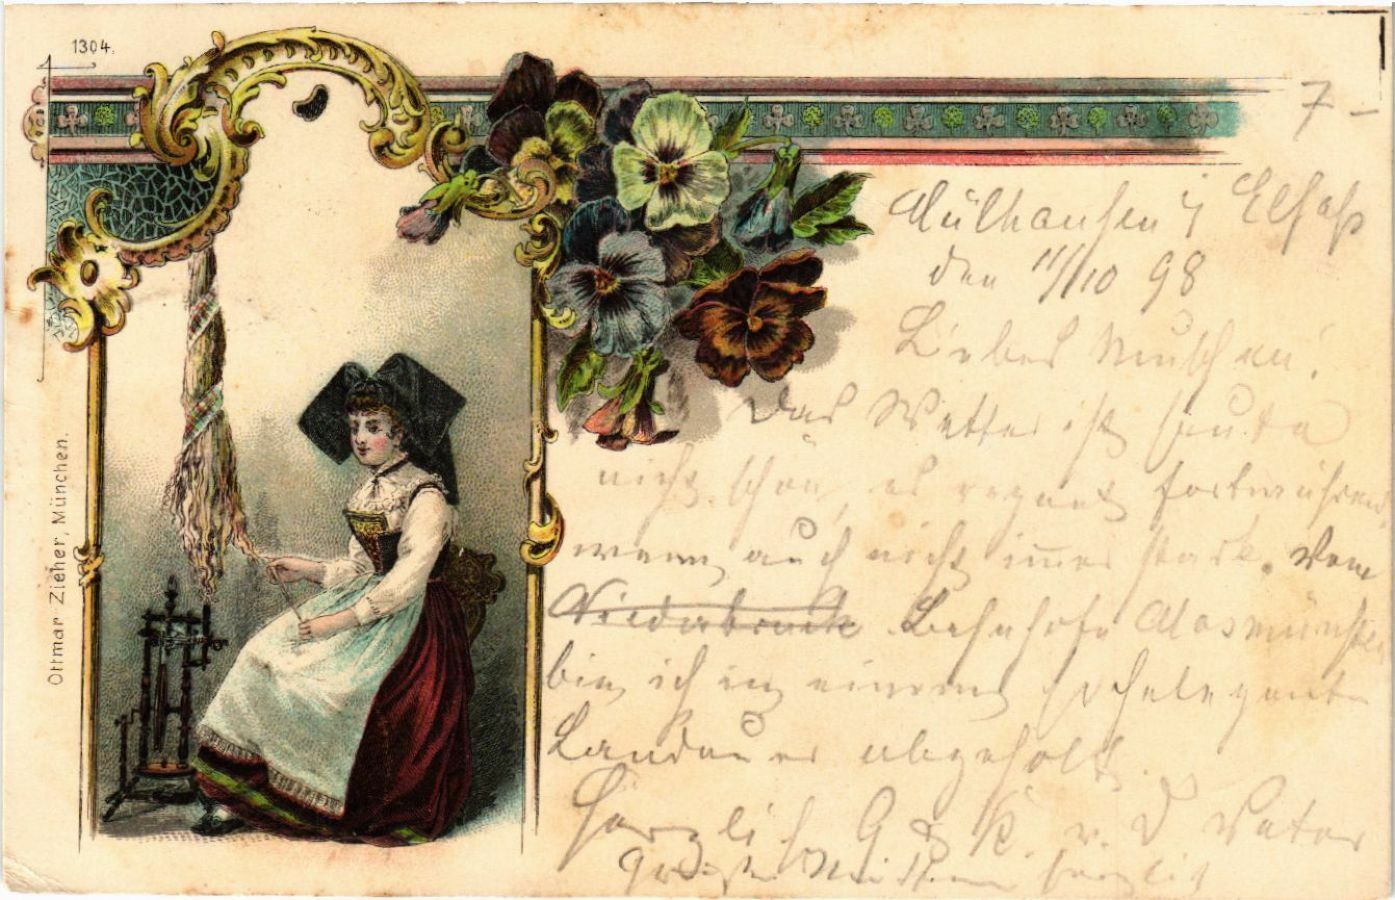 1304.
7 –
Mülhausen i/ Elsaß
den 11/10 98
Liebes Muschen!
Das Wetter ist heute
nicht schön, es regnet fortwährend,
wenn auch nicht immer stark. Vom
Niederbruck Bahnhofe Masmünster
bin ich in einem hocheleganten
Landauer abgeholt.
Herzlich. G & K. v. D Vater
Grüße Mutter herzlich
Ottmar Zieher, München.